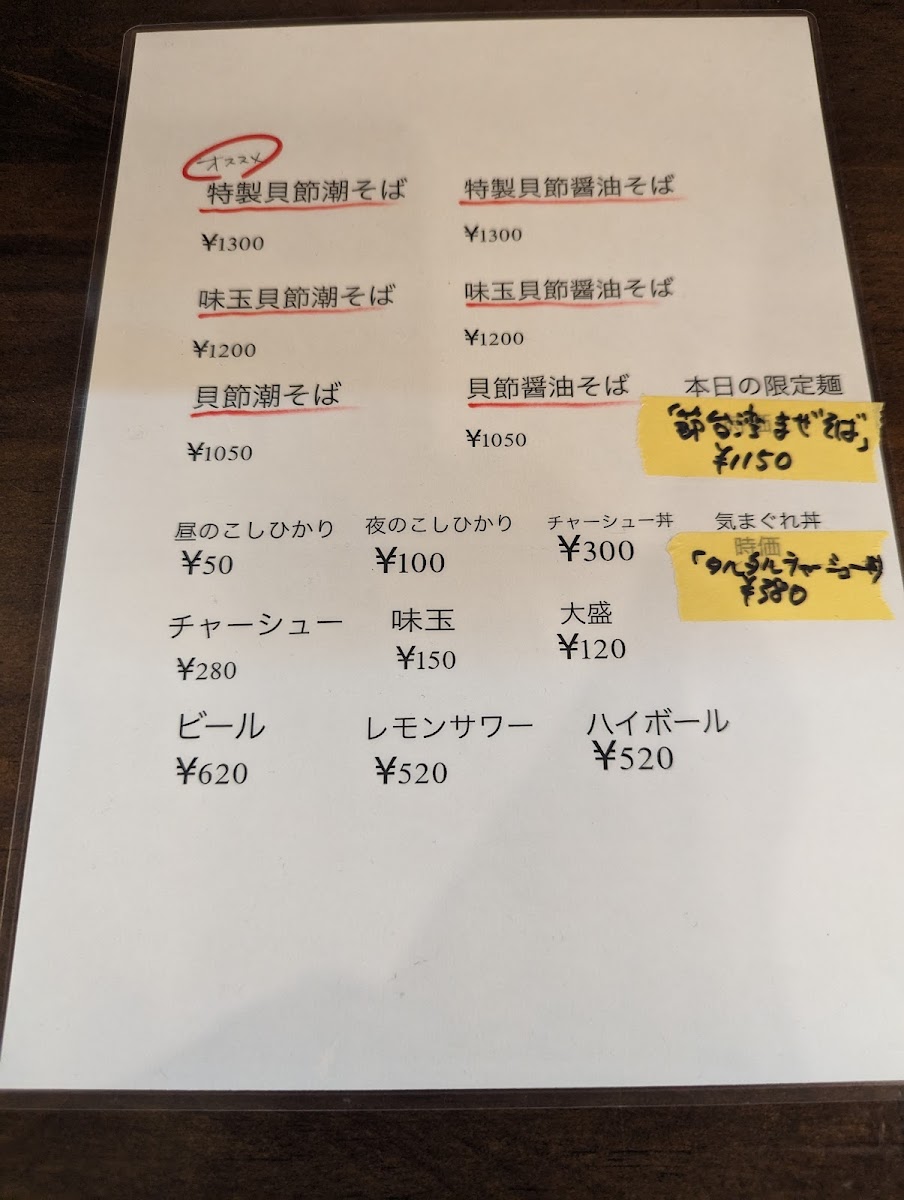 オススメ
特製貝節潮そば
¥1300
特製貝節醤油そば
¥1300
味玉貝節潮そば
¥1200
味玉貝節醤油そば
¥1200
貝節潮そば
¥1050
貝節醤油そば
¥1050
本日の限定麺
「節台湾まぜそば」
¥1150
昼のこしひかり
¥50
夜のこしひかり
¥100
チャーシュー丼
¥300
気まぐれ丼
時価
「タルタルチャーシュー丼」
¥380
チャーシュー
¥280
味玉
¥150
大盛
¥120
ビール
¥620
レモンサワー
¥520
ハイボール
¥520